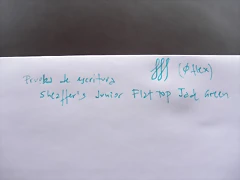 Prueba de escritura fff (ø flex)
Sheaffer's Junior Flat top Jade Green